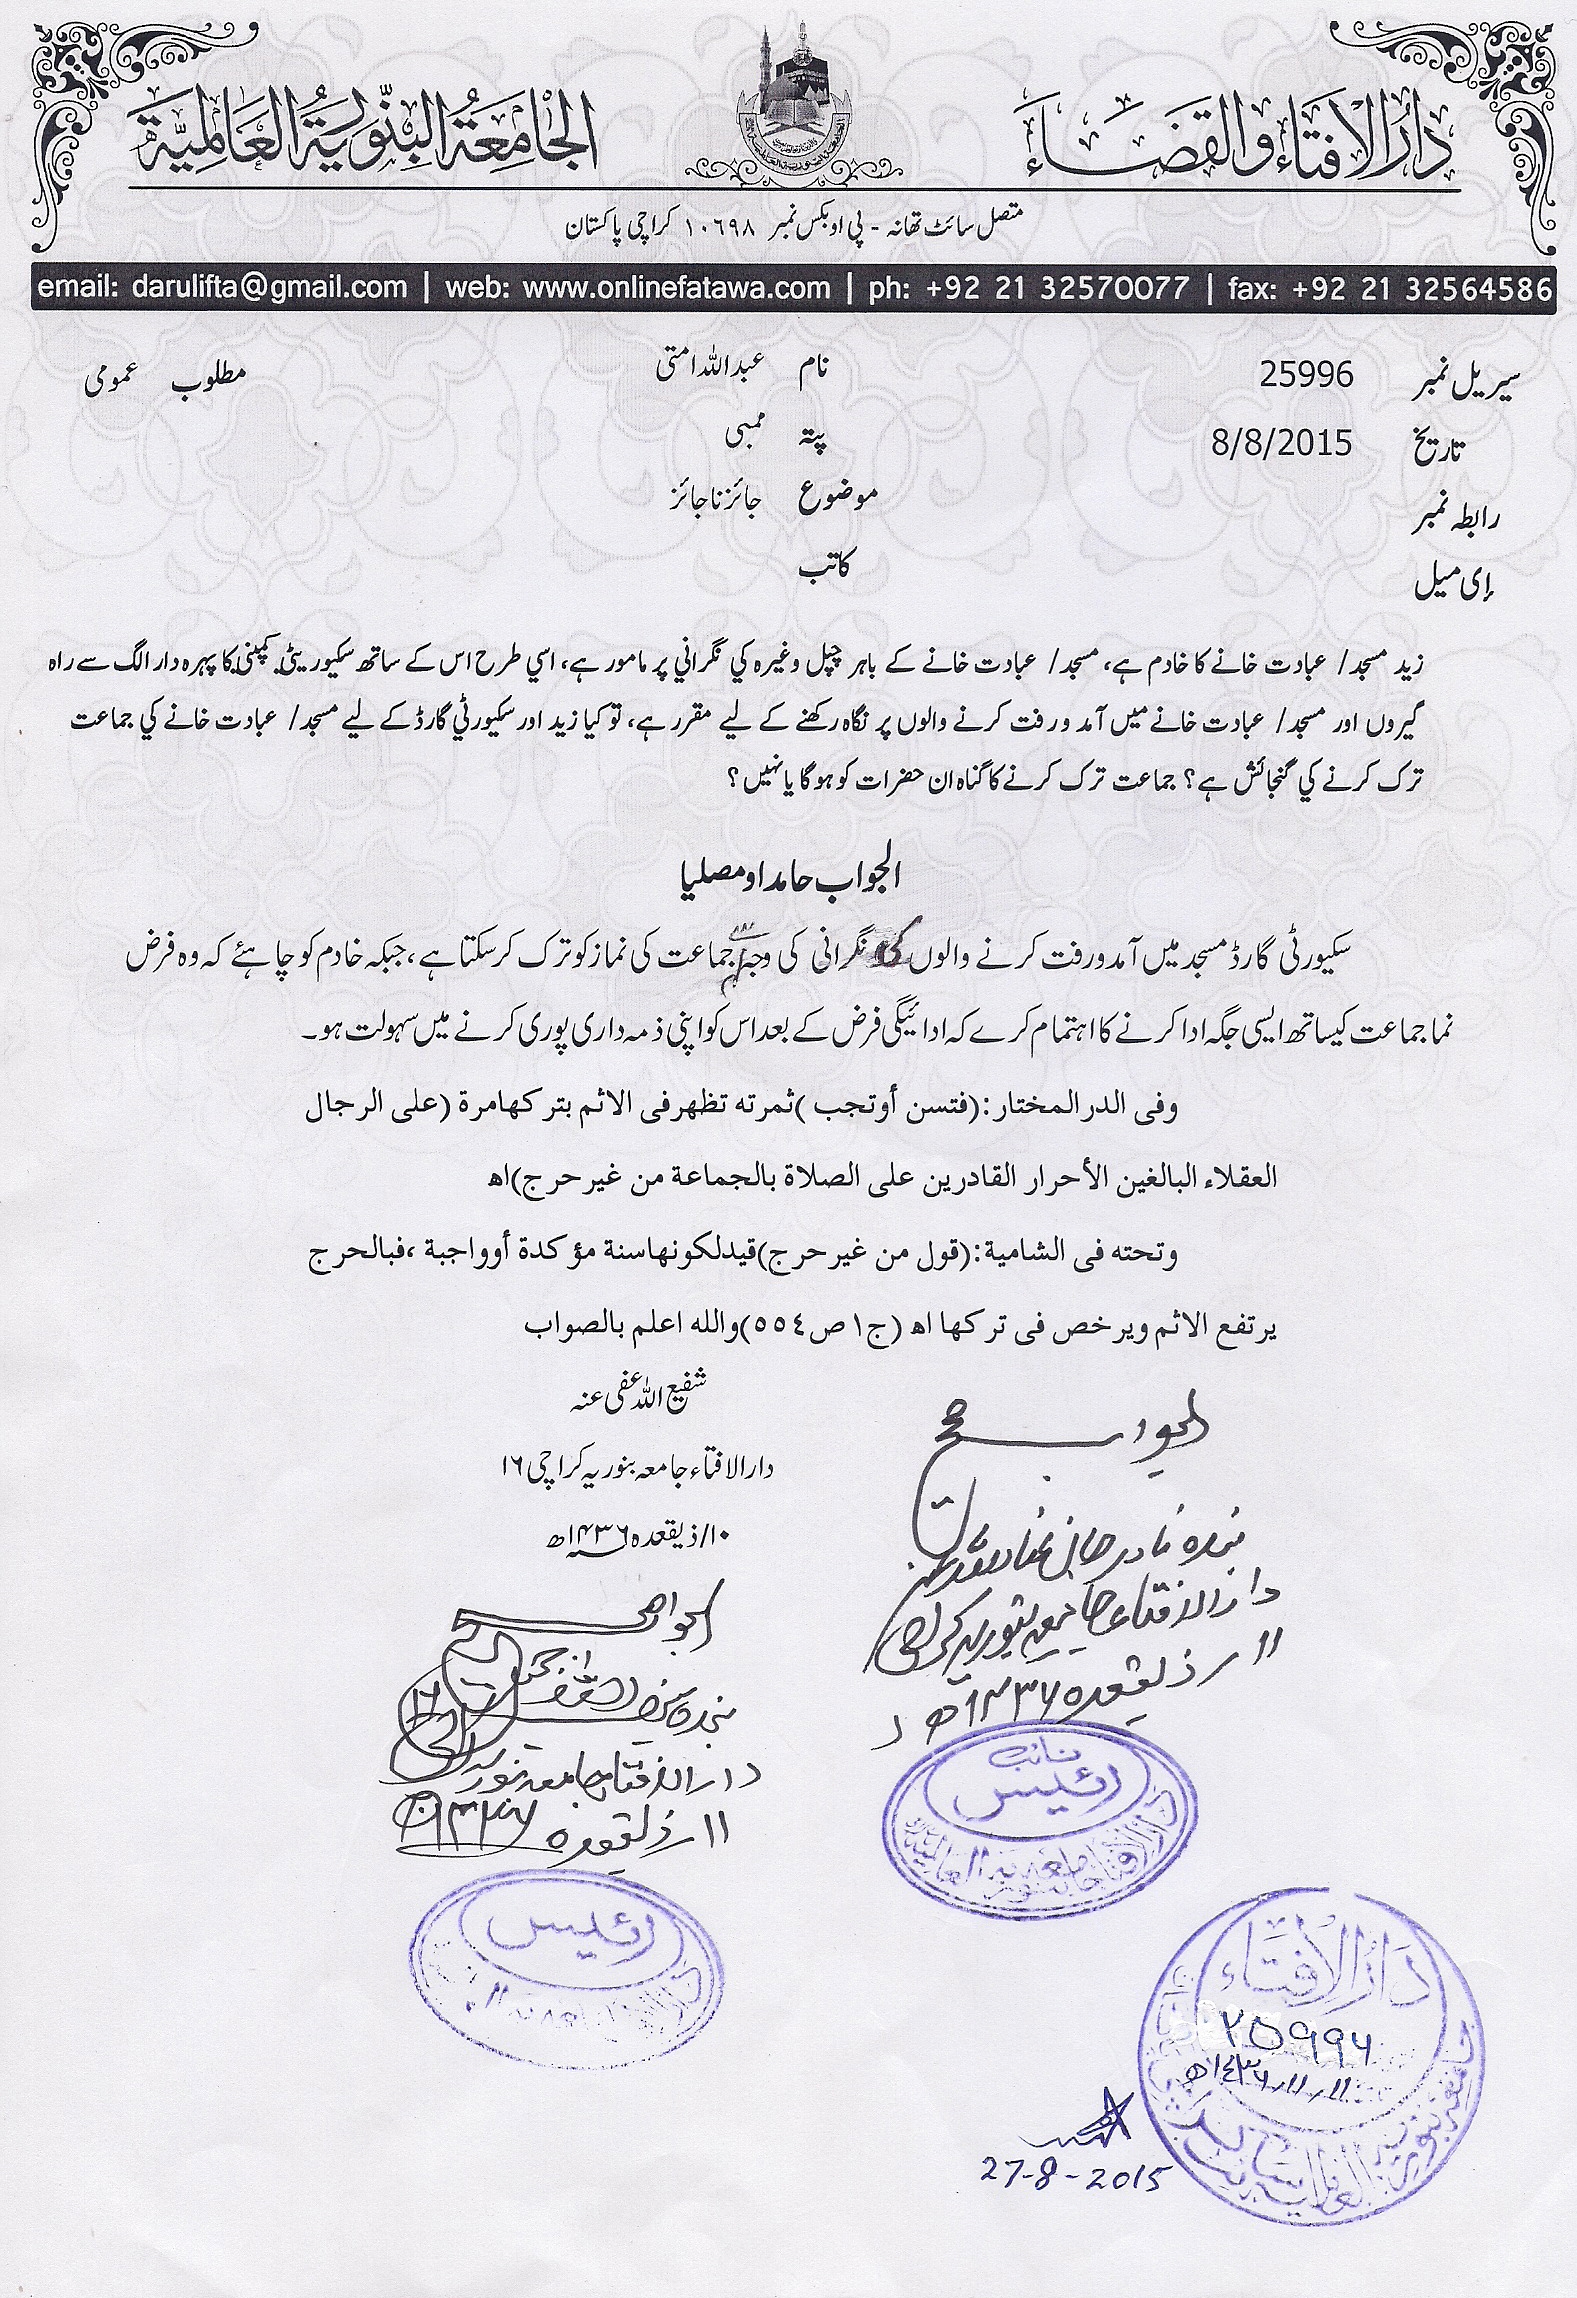 دَارُالاِفتَاءوَالقَضَاءُ
الجَامِعَةُ البِنّورِيَّةُ العَالَمِيَّة
متصل سائٹ تھانہ - پی او بکس نمبر ۱۰۶۹۸ کراچی پاکستان
email: darulifta@gmail.com | web: www.onlinefatawa.com | ph: +92 21 32570077 | fax: +92 21 32564586
سیریل نمبر 25996 نام عبداللہ امتی مطلوب عمومی
تاریخ 8/8/2015 پتہ ممبی
رابطہ نمبر موضوع جائز ناجائز
إی میل کاتب
زید مسجد/ عبادت خانے کا خادم ہے، مسجد/ عبادت خانے کے باہر چپل وغیرہ کي نگراني پر مامور ہے، اسي طرح اس کے ساتھ سکیوریٹی کمپنی کا پہرہ دار الگ سے راہ
گیروں اور مسجد/ عبادت خانے میں آمد ورفت کرنے والوں پر نگاہ رکھنے کے لیے مقرر ہے، تو کیا زید اور سکیورٹي گارڈ کے لیے مسجد/ عبادت خانے کي جماعت
ترک کرنے کي گنجائش ہے؟ جماعت ترک کرنے کا گناہ ان حضرات کو ہوگا یا نہیں؟
الجواب حامداومصلیا
سکیورٹی گارڈ مسجد میں آمدورفت کرنے والوں کی نگرانی کی وجہ سے جماعت کی نماز کو ترک کرسکتا ہے، جبکہ خادم کو چاہئے کہ وہ فرض
نما جماعت کیساتھ ایسی جگہ ادا کرنے کا اہتمام کرے کہ ادائیگی فرض کے بعد اس کو اپنی ذمہ داری پوری کرنے میں سہولت ہو۔
وفی الدرالمختار:(فتسن أوتجب )ثمرته تظهرفی الاثم بترکهامرة (علی الرجال
العقلاء البالغین الأحرار القادرین علی الصلاة بالجماعة من غیرحرج)اھ
وتحته فی الشامیة:(قول من غیرحرج)قیدلکونهاسنة مؤکدة أوواجبة ،فبالحرج
یرتفع الاثم ویرخص فی ترکها اھ (ج۱ ص٥٥٤)والله اعلم بالصواب
شفیع اللہ عفی عنہ
دارالافتاء جامعہ بنوریہ کراچی ۱۶
۱۰/ذیقعدہ ۱۴۳۶ھ
الجواب صحیح
بندہ نادر جان
دارالافتاء جامعہ بنوریہ کراچی
۱۱ر ذیقعدہ ۱۴۳۶ھ
نائب
رئیس
الجواب صحیح
دارالافتاء جامعہ بنوریہ
۱۱ر ذیقعدہ ۱۴۳۶ھ
رئیس
دَارُالاِفتَاء
۲۵۹۹۶
۱۱/۱۱/۱۴۳۶ھ
27-8-2015